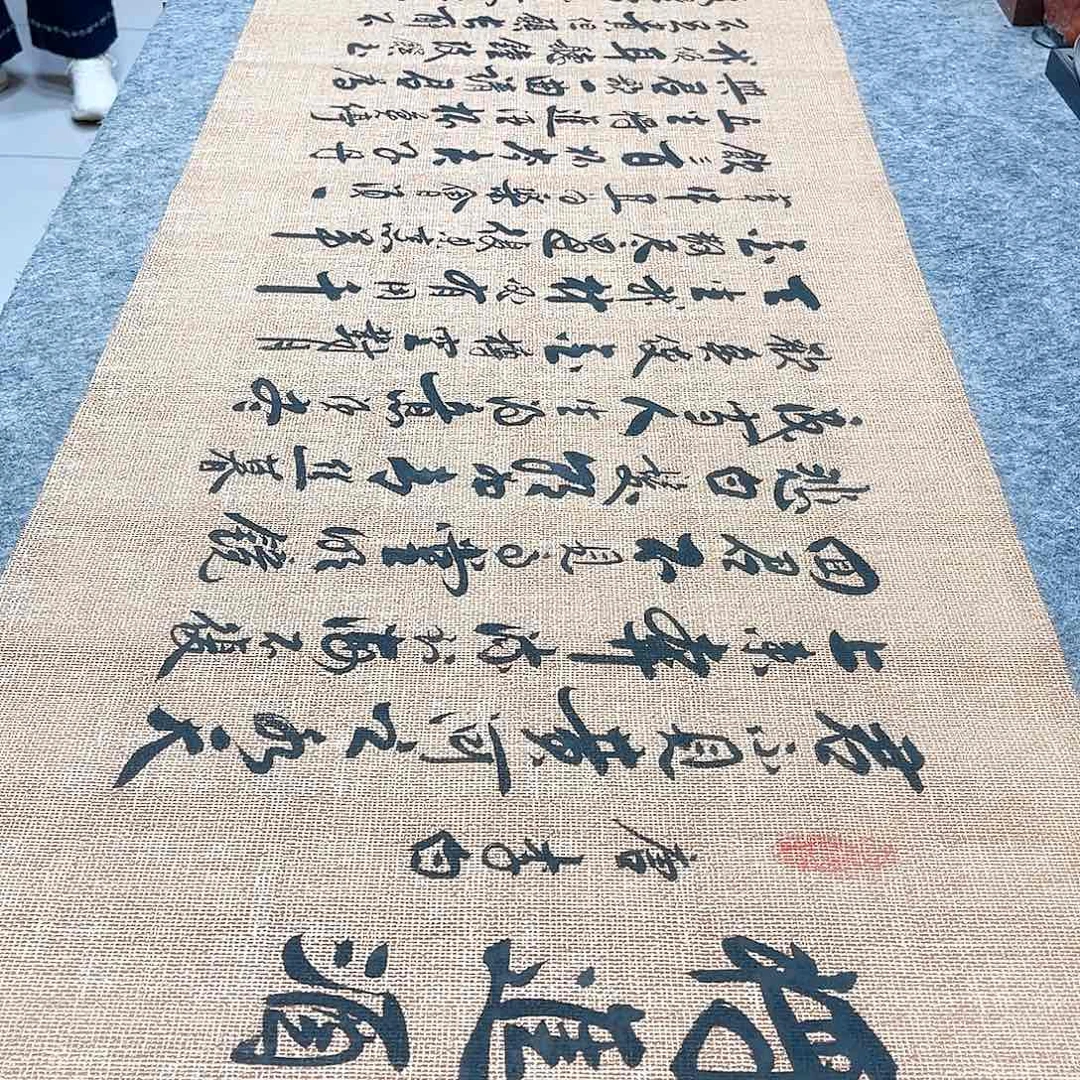 將進酒
唐李白
君不見黃河之水天
上來奔流到海不復
回君不見高堂明鏡
悲白髮朝如青絲暮
成雪人生得意須盡
歡莫使金樽空對月
天生我材必有用千
金散尽還復來烹羊
宰牛且為樂會須一
飲三百杯岑夫子丹
丘生將進酒杯莫停
與君歌一曲請君為
我傾耳聽鐘鼓饌玉
不足貴但願長醉不